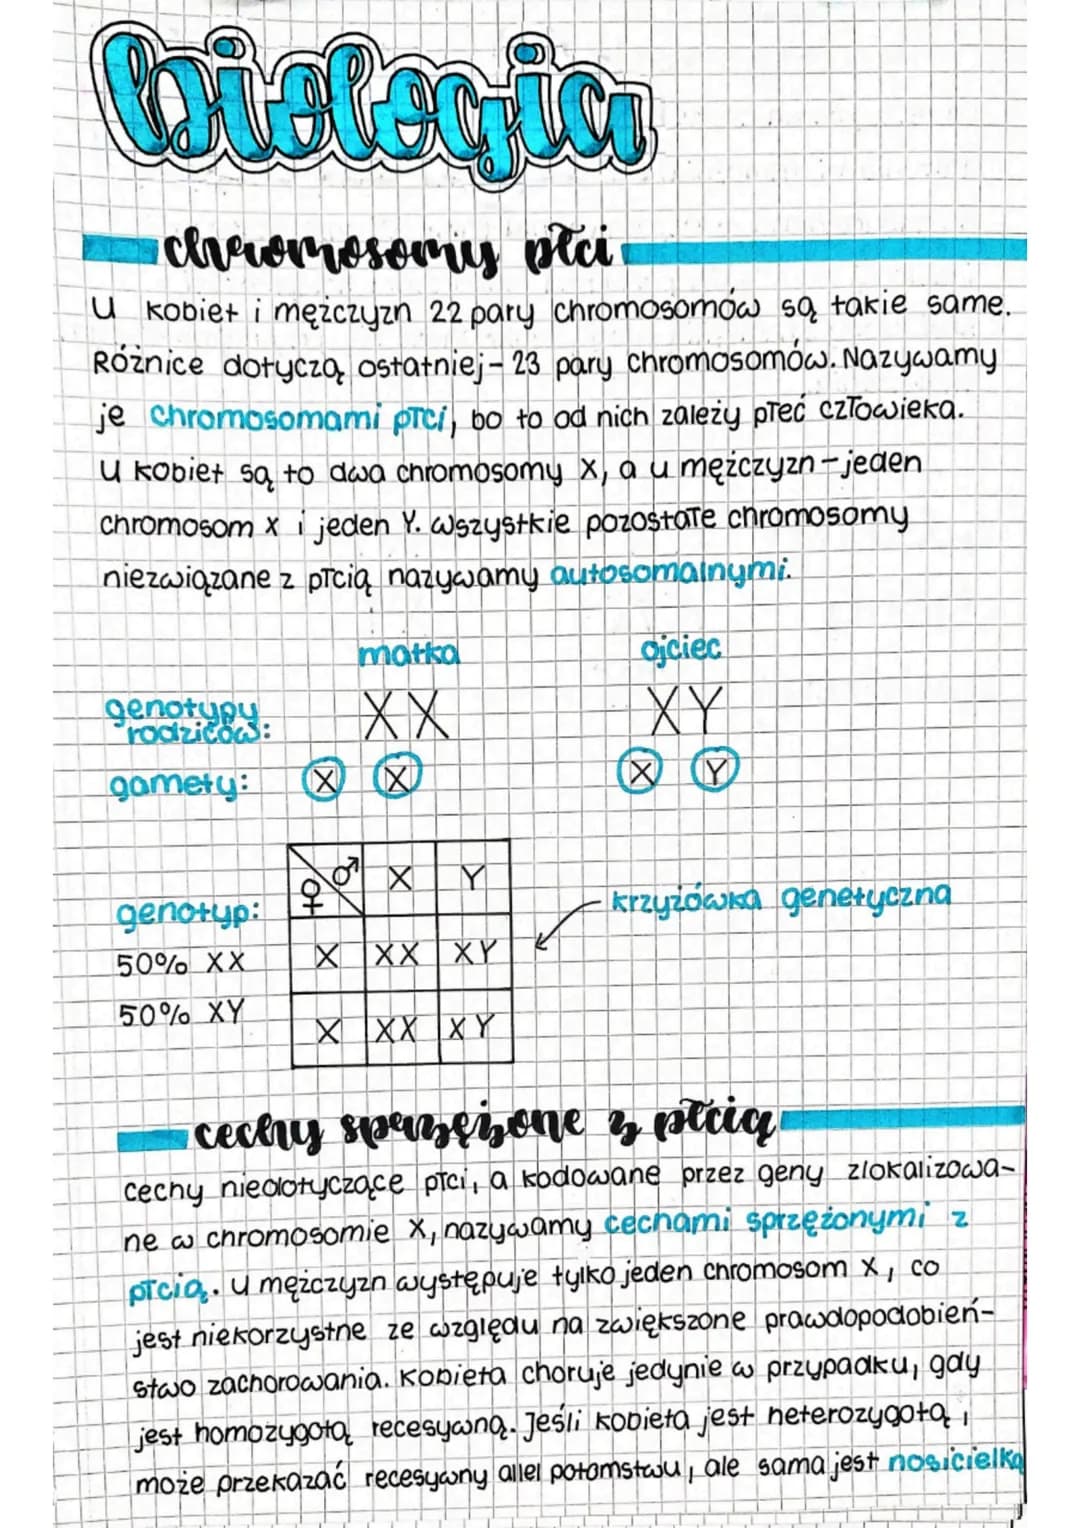 biologia
chromosomy płci
U kobiet i mężczyzn 22 pary chromosomów są takie same.
Różnice dotyczą ostatniej - 23 pary chromosomów. Nazywamy
je chromosomami płci, bo to od nich zależy płeć człowieka.
U kobiet są to dwa chromosomy X, a u mężczyzn - jeden
chromosom X i jeden Y. Wszystkie pozostałe chromosomy
niezwiązane z płcią nazywamy autosomalnymi.
matka ojciec
genotypy rodziców: XX XY
gamety: X X X Y
♀ ♂ X Y
genotyp: krzyżówka genetyczna
50% XX X XX XY
50% XY X XX XY
cechy sprzężone z płcią
cechy niedotyczące płci, a kodowane przez geny zlokalizowa-
ne w chromosomie X, nazywamy cechami sprzężonymi z
płcią. U mężczyzn występuje tylko jeden chromosom X, co
jest niekorzystne ze względu na zwiększone prawdopodobień-
stwo zachorowania. Kobieta choruje jedynie w przypadku, gdy
jest homozygotą recesywną. Jeśli kobieta jest heterozygotą,
może przekazać recesywny allel potomstwu, ale sama jest nosicielką